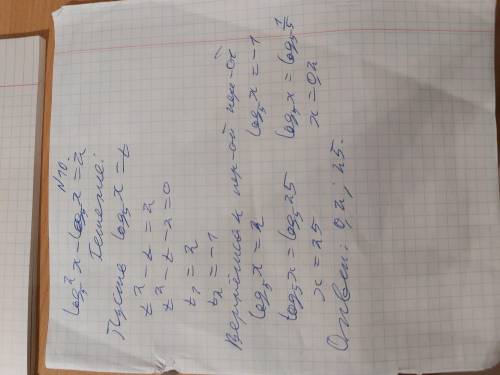 N10.
log₅²x - log₅x = 2
Решение:
Пусть log₅x = t
t² - t = 2
t² - t - 2 = 0
t₁ = 2
t₂ = -1
Вернёмся к пер-ой пер-ой
log₅x = 2 log₅x = -1
log₅x = log₅25 log₅x = log₅1/5
x = 25 x = 0,2
Ответ: 0,2; 25.